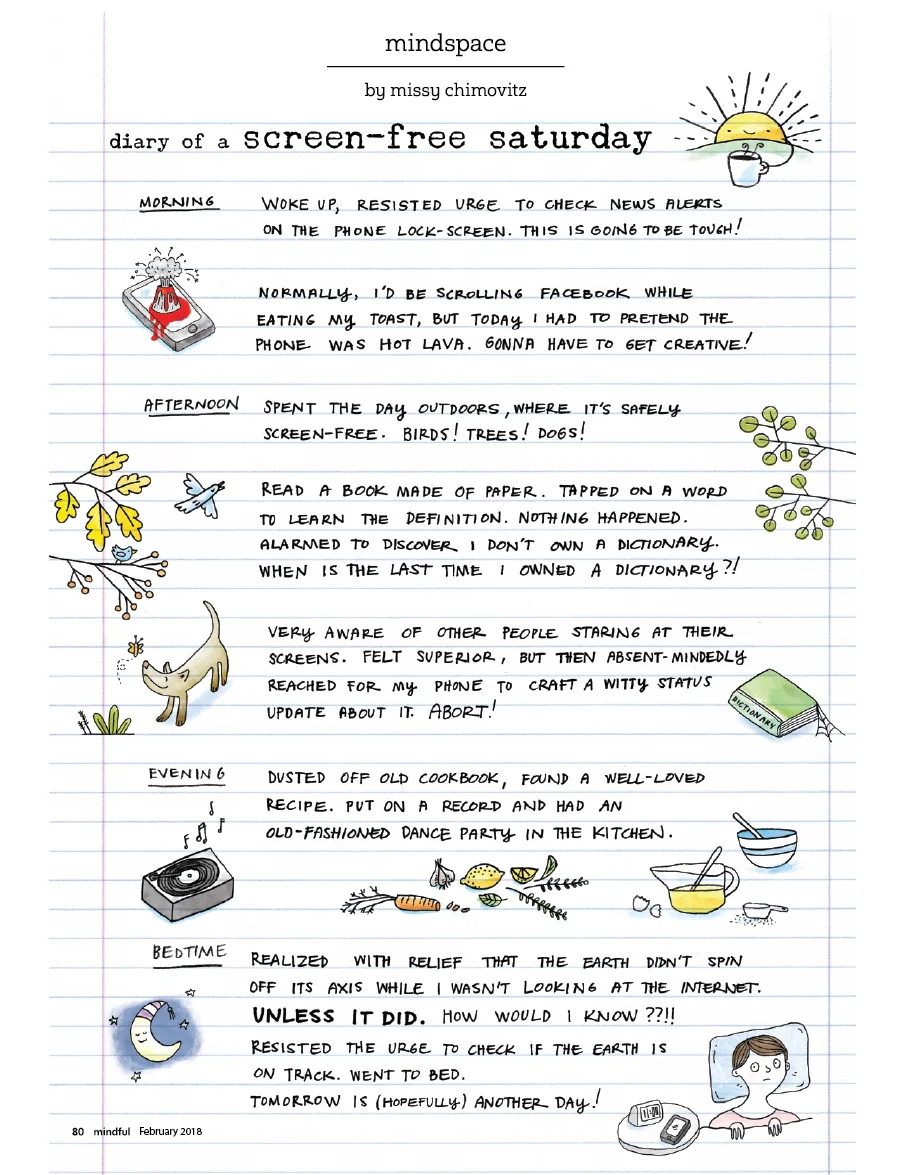 mindspace
by missy chimovitz
diary of a screen-free saturday
MORNING
WOKE UP, RESISTED URGE TO CHECK NEWS ALERTS
ON THE PHONE LOCK-SCREEN. THIS IS GOING TO BE TOUGH!
NORMALLY, I'D BE SCROLLING FACEBOOK WHILE
EATING MY TOAST, BUT TODAY I HAD TO PRETEND THE
PHONE WAS HOT LAVA. GONNA HAVE TO GET CREATIVE!
AFTERNOON
SPENT THE DAY OUTDOORS, WHERE IT'S SAFELY
SCREEN-FREE. BIRDS! TREES! DOGS!
READ A BOOK MADE OF PAPER. TAPPED ON A WORD
TO LEARN THE DEFINITION. NOTHING HAPPENED.
ALARMED TO DISCOVER I DON'T OWN A DICTIONARY.
WHEN IS THE LAST TIME I OWNED A DICTIONARY?!
VERY AWARE OF OTHER PEOPLE STARING AT THEIR
SCREENS. FELT SUPERIOR, BUT THEN ABSENT-MINDEDLY
REACHED FOR MY PHONE TO CRAFT A WITTY STATUS
UPDATE ABOUT IT. ABORT!
DICTIONARY
EVENING
DUSTED OFF OLD COOKBOOK, FOUND A WELL-LOVED
RECIPE. PUT ON A RECORD AND HAD AN
OLD-FASHIONED DANCE PARTY IN THE KITCHEN.
BEDTIME
REALIZED WITH RELIEF THAT THE EARTH DIDN'T SPIN
OFF ITS AXIS WHILE I WASN'T LOOKING AT THE INTERNET.
UNLESS IT DID. HOW WOULD I KNOW ??!!
RESISTED THE URGE TO CHECK IF THE EARTH IS
ON TRACK. WENT TO BED.
TOMORROW IS (HOPEFULLY) ANOTHER DAY!
80 mindful February 2018